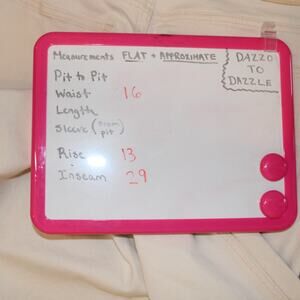 Measurements FLAT + APPROXIMATE
DAZZO
TO
DAZZLE
Pit to Pit
Waist 16
Length
Sleeve (from pit)
Rise 13
Inseam 29